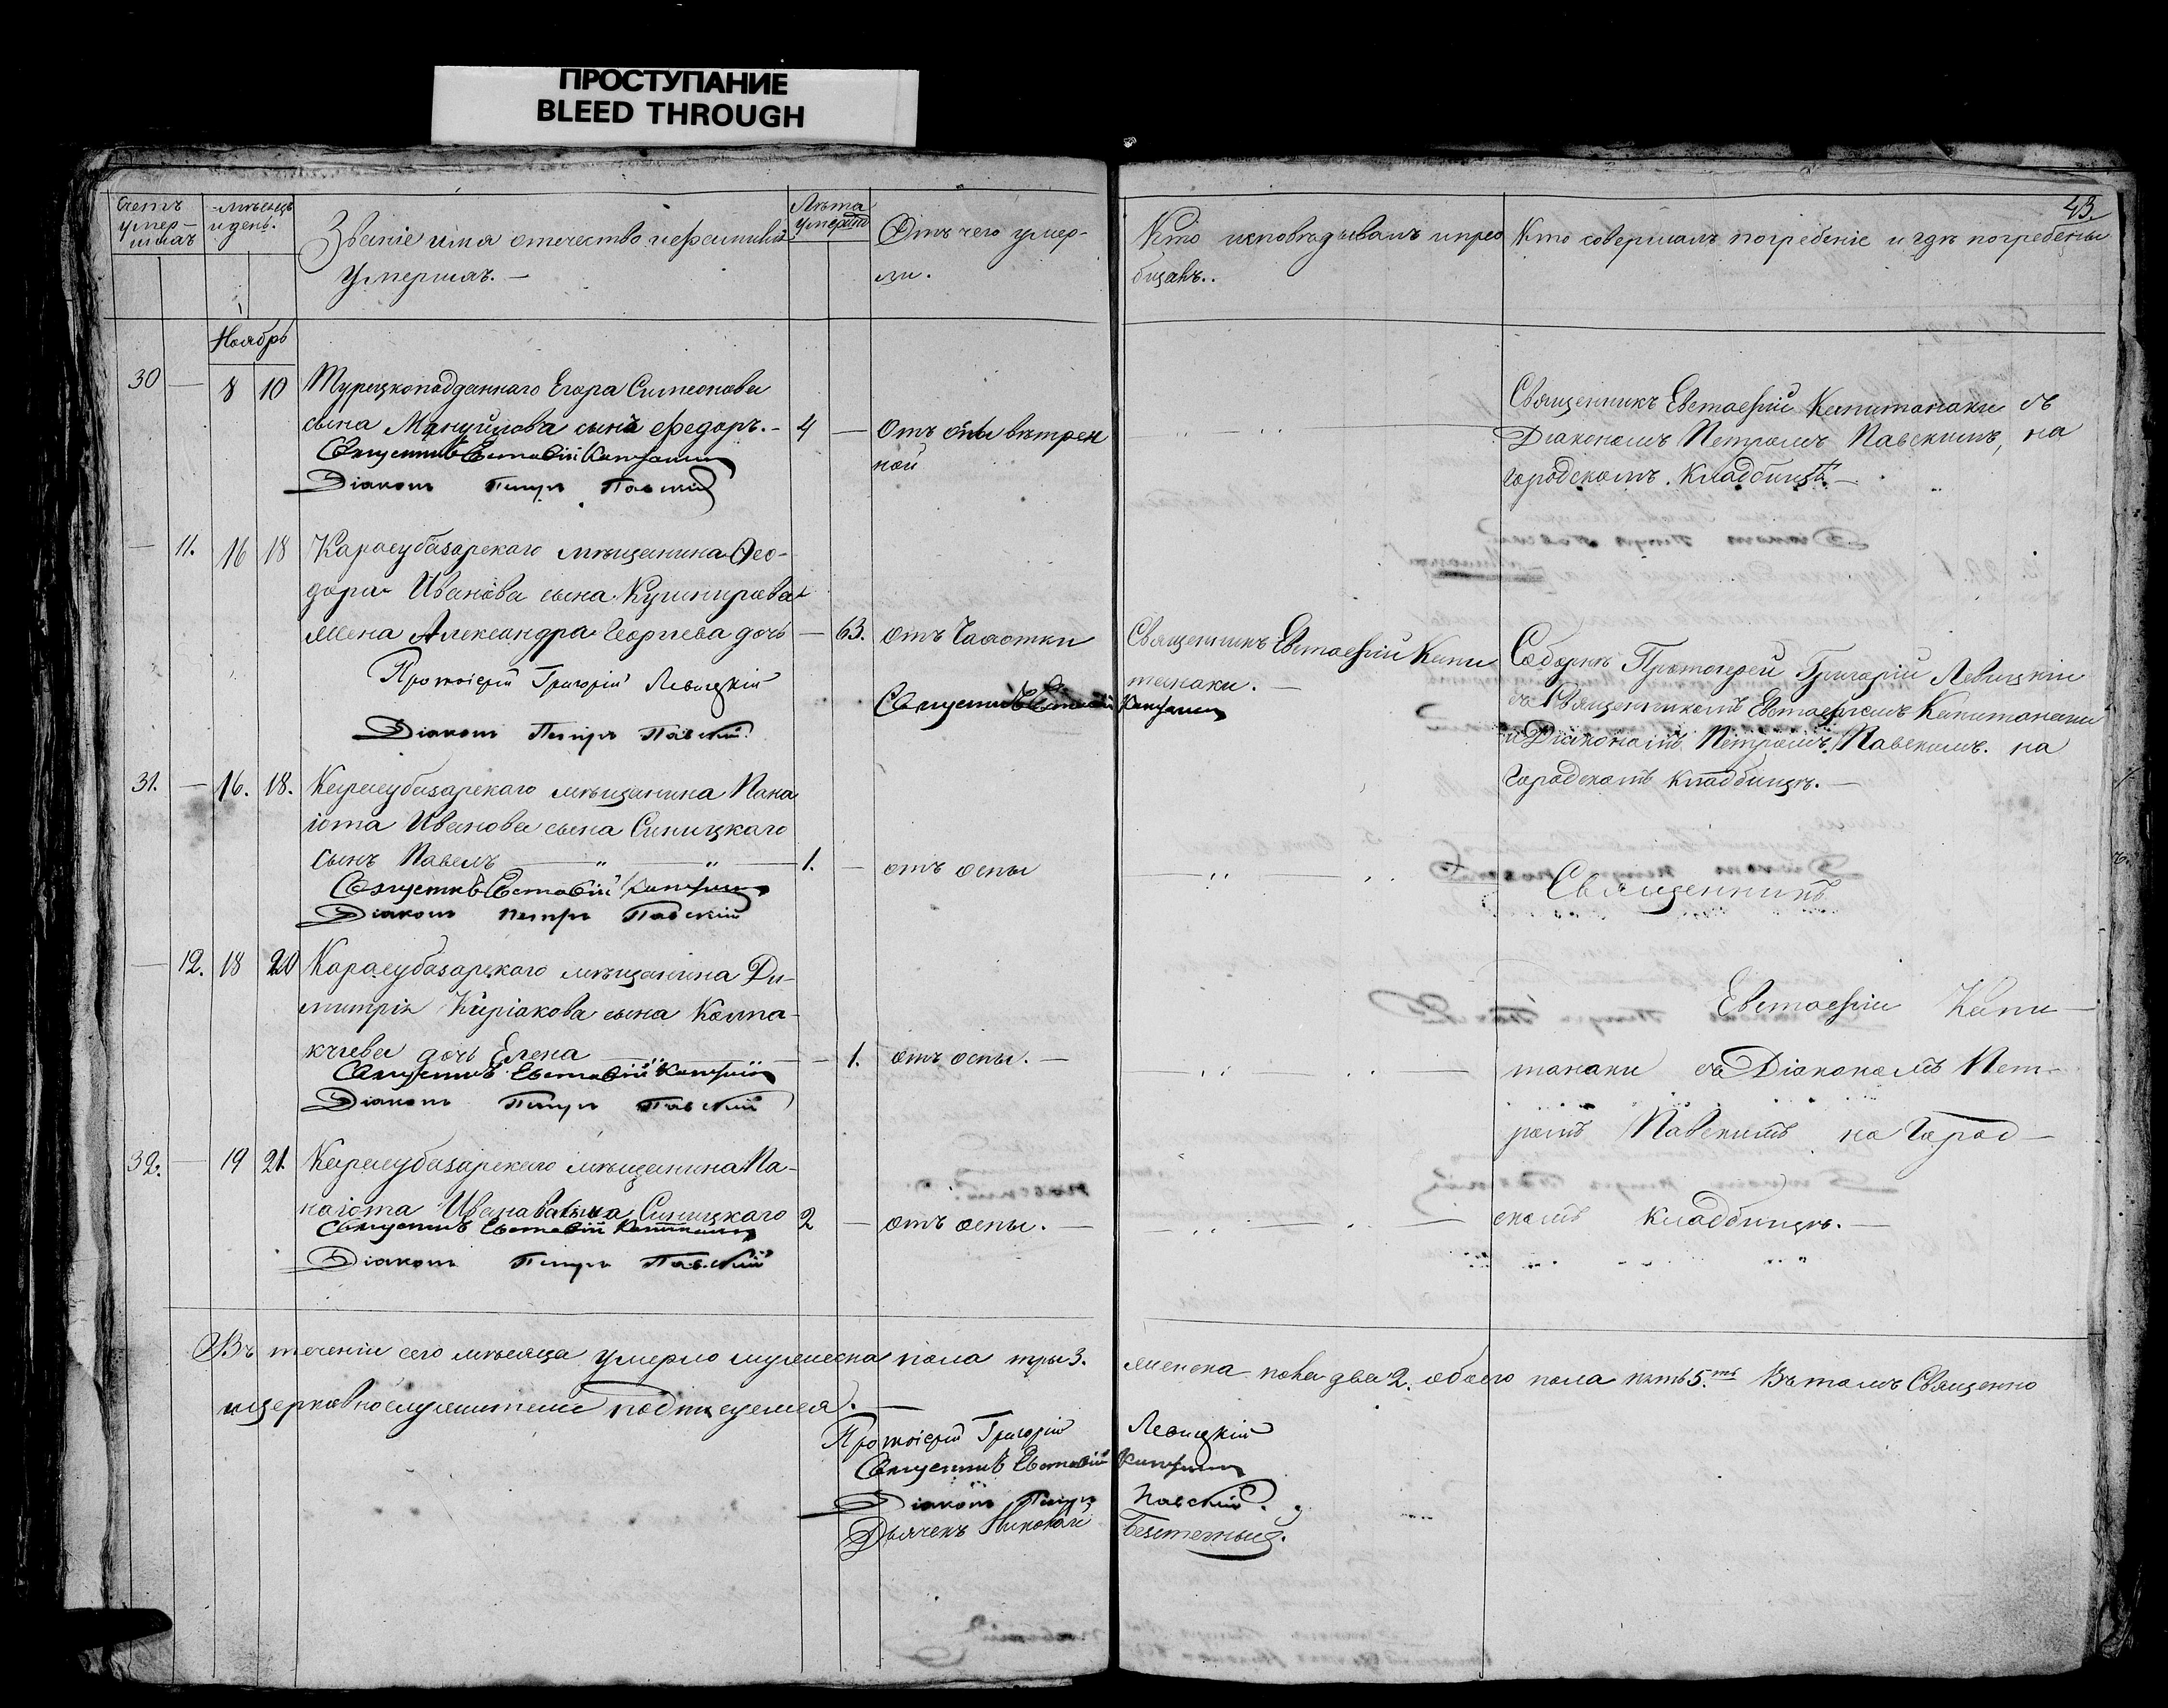 ПРОСТУПАНИЕ
BLEED THROUGH
43.
Счетъ умер-шихъ
мѣсяцъ и день.
Званіе имя отечество и фамилія
умершихъ. —
Лѣта умершихъ
Отъ чего умер-
ли.
Кто исповѣдывалъ и прео
бщалъ..
Кто совершалъ погребеніе и гдѣ погребены
Ноябрь
30 — 8 10 Турецкоподданнаго Егора Симеонова
сына Мануйлова сынъ Ѳедоръ. — 4 — Отъ оспы вѣтрен
ной
Священникъ Евстафій Капитанаки
Діаконъ Петръ Павскій
Священникъ Евстафій Капитанаки съ
Діакономъ Петромъ Павскимъ, на
городскомъ. Кладбищѣ. —
— 11. 16 18 Карасубазарскаго мѣщанина Ѳео-
дора Иванова сына Кушнирова
жена Александра Георгіева дочь — 63. отъ Чахотки
Протоіерей Григорій Левицкій
Священникъ Евстафій Капитанаки
Діаконъ Петръ Павскій.
Священникъ Евстафій Капи
танаки. —
Соборнѣ Протоіерей Григорій Левицкій
съ Священникомъ Евстафіемъ Капитанаки
и Діакономъ Петромъ Павскимъ. на
Городскомъ кладбищѣ. —
31. — 16. 18. Карасубазарскаго мѣщанина Пана
іота Иванова сына Синицкаго
сынъ Павелъ — 1. — отъ оспы
Священникъ Евстафій Капитанаки
Діаконъ Петръ Павскій
Священникъ
— 12. 18 20 Карасубазарскаго мѣщанина Ди-
митрія Киріакова сына Калпа-
кчіева дочь Елена — 1. отъ оспы. —
Священникъ Евстафій Капитанаки
Діаконъ Петръ Павскій
Евстафій Капи-
танаки съ Діакономъ Пет-
ромъ Павскимъ на Город-
скомъ Кладбищѣ. —
32. — 19 21. Карасубазарскаго мѣщанина Па-
наіота Иванова сына Синицкаго 2 — отъ оспы. —
Священникъ Евстафій Капитанаки
Діаконъ Петръ Павскій
Въ теченіи сего мѣсяца умерло мужеска пола три 3. женска пола два 2. обоего пола пять 5.ть Въ томъ Священно
ицерковнослужители подписуемся. —
Протоіерей Григорій Левицкій
Священникъ Евстафій Капитанаки
Діаконъ Петръ Павскій.
Дьячекъ Николай